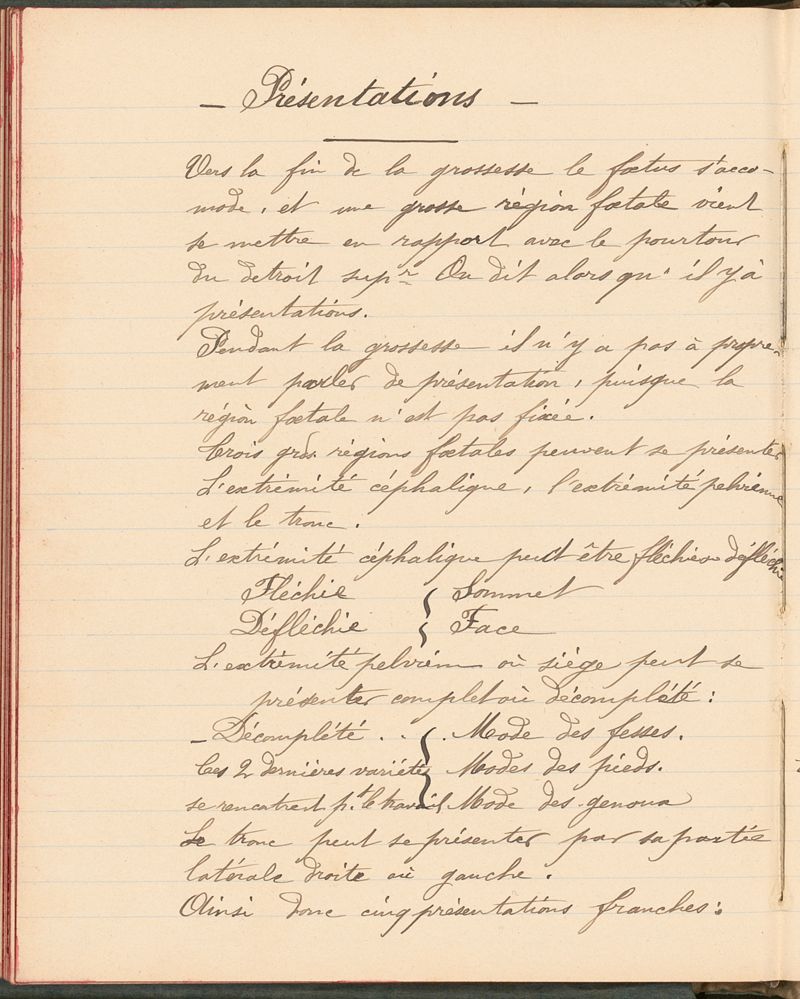 — Présentations —
Vers la fin de la grossesse le fœtus s'acco-
mode, et une grosse région fœtale vient
se mettre en rapport avec le pourtour
du detroit sup.r On dit alors qu'il y a
présentations.
Pendant la grossesse il n'y a pas à propre-
ment parler de présentation, puisque la
région fœtale n'est pas fixée.
Trois grds. régions fœtales peuvent se présenter
L'extrémité céphalique, l'extrémité pelvienne
et le tronc.
L'extrémité céphalique peut être fléchie ou défléchie
Fléchie { Sommet
Défléchie { Face
L'extrémité pelvienn ou siège peut se
présenter complet ou décomplété :
— Décomplété . . { . Mode des fesses.
Ces 2 dernières variétés { Modes des pieds.
se rencontrent p.t le travail { Mode des genoux
Le tronc peut se présenter par sa partie
latérale droite ou gauche.
Ainsi donc cinq présentations franches :